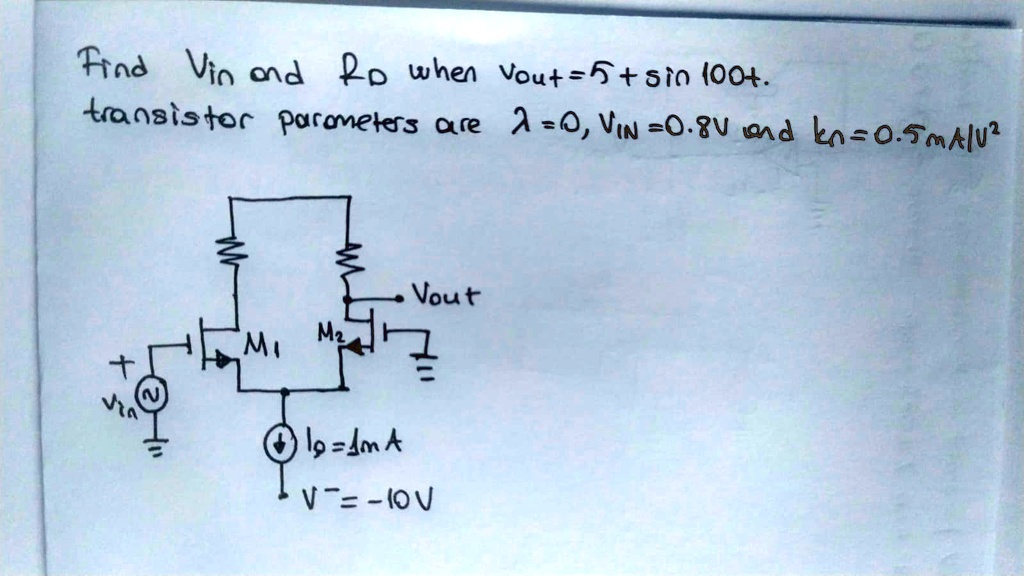 Find Vin and RD when Vout=5+sin 100t.
transistor parameters are λ=0, VIN=0.8V and kn=0.5mA/V²
Vout
M1 M2
+
Vin
IQ=1mA
V⁻=-10V